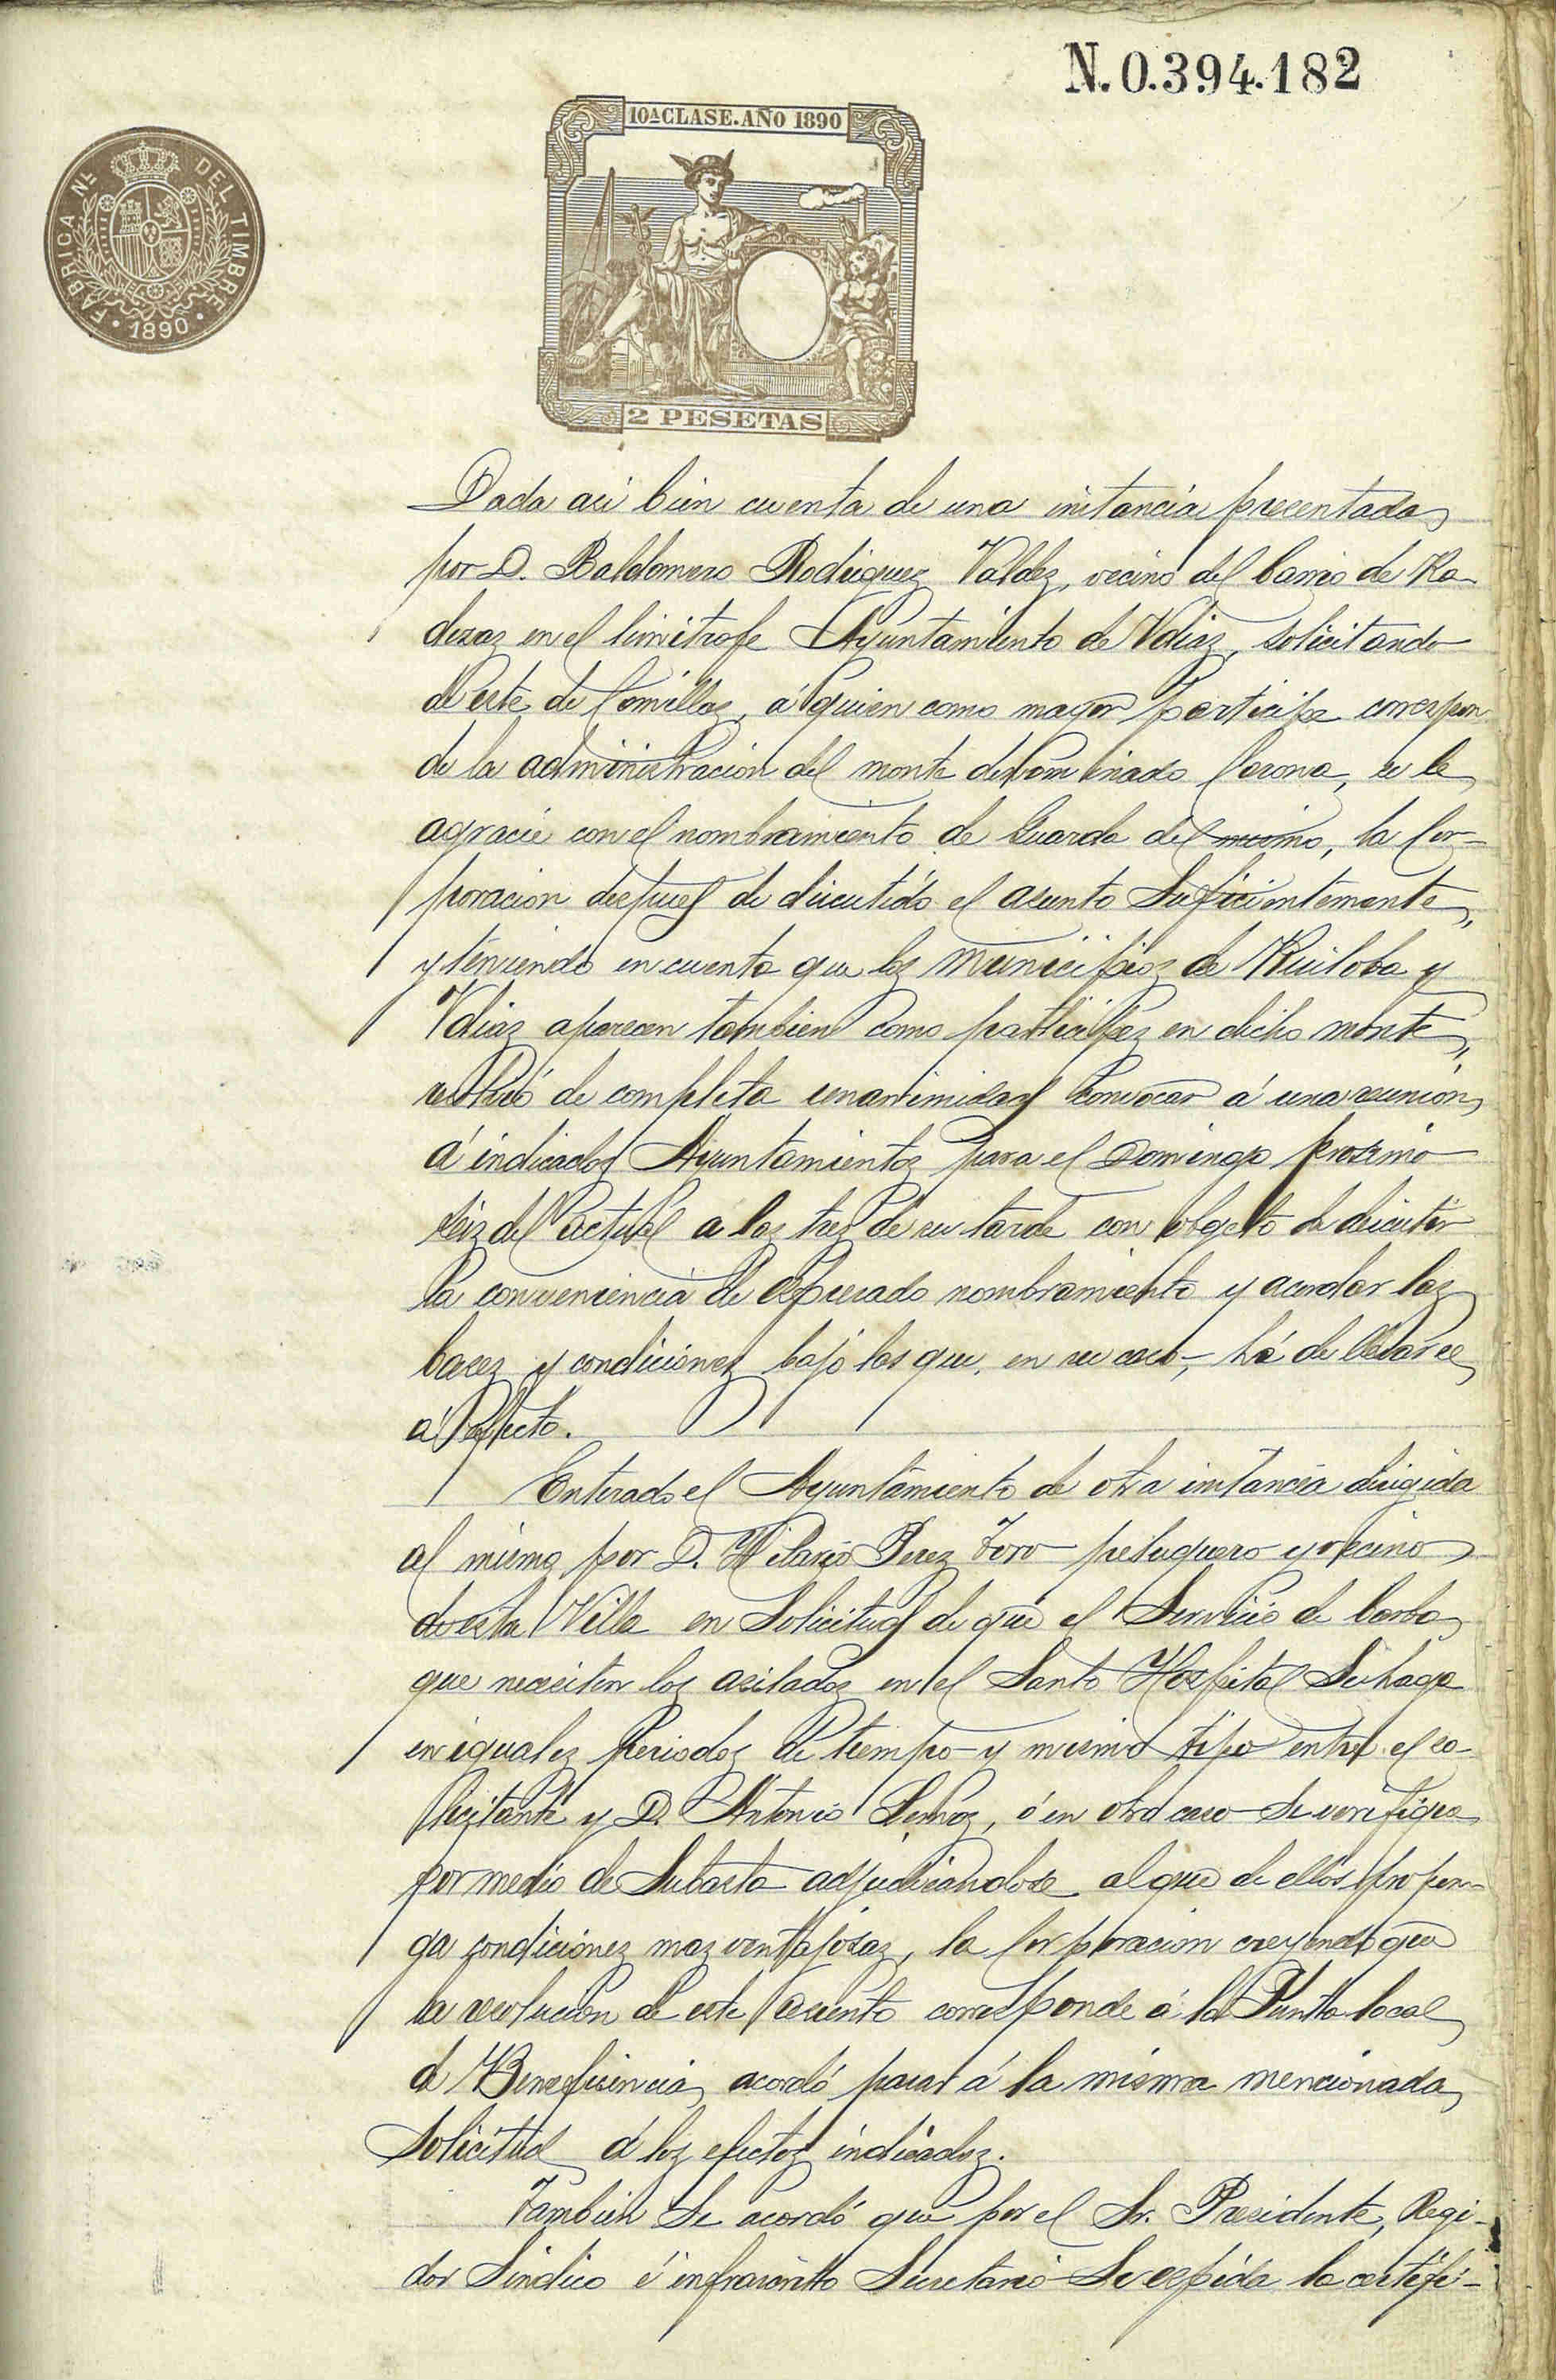 N.0.394.182
10ª CLASE. AÑO 1890
FABRICA NL. DEL TIMBRE
1890
2 PESETAS
Dada asi bien cuenta de una instancia presentada
por D. Baldomero Rodriguez Valdez, vecino del barrio de Ra-
deraz en el limitrofe Ayuntamiento de Vdiaz, solicitando
de este de Comillas, á quien como mayor participe correspon
de la administracion del monte denominado Corona, se le
agracie con el nombramiento de Guarda del mismo, la Cor-
poracion despues de discutido el asunto suficientemente,
y teniendo en cuenta que los Municipios de Ruiloba y
Vdiaz aparecen tambien como participes en dicho monte,
resolvió de completa unanimidad convocar á una reunion
á indicados Ayuntamientos para el Domingo proximo
seis del actual a las tres de su tarde con objeto de discutir
la conveniencia de espresado nombramiento y acordar las
bases y condiciones bajo las que, en su caso, há de llevarse
á efecto.
Enterado el Ayuntamiento de otra instancia dirigida
al mismo por D. Hilario Perez Toro peluquero y vecino
de esta Villa en solicitud de que el Servicio de barba
que necesiten los asilados en el Santo Hospital se haga
en iguales periodos de tiempo y mismo tipo entre el so-
licitante y D. Antonio, ó en otro caso se verifique
por medio de Subasta adjudicandose al que de ellos propon-
ga condiciones mas ventajosas, la Corporacion creyendo que
la resolucion de este asunto corresponde á la Junta local
de Beneficencia, acordó pasar á la misma mencionada
solicitud á los efectos indicados.
Tambien se acordó que por el Sr. Presidente, Regi-
dor Sindico é infrascrito Secretario se espida la certifi-